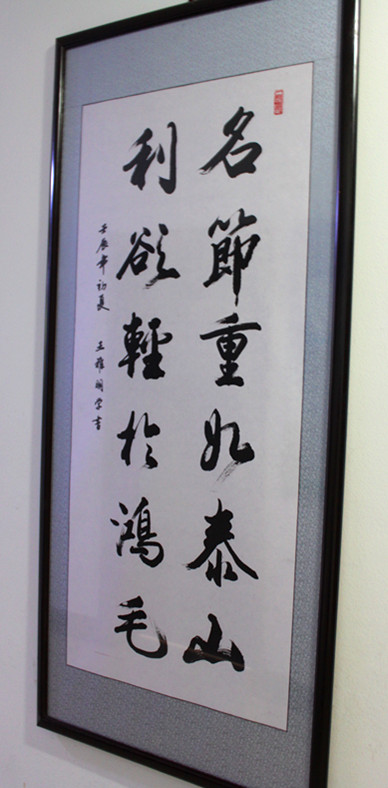 名節重如泰山
利欲輕於鴻毛
壬辰年初夏 王雅明學書